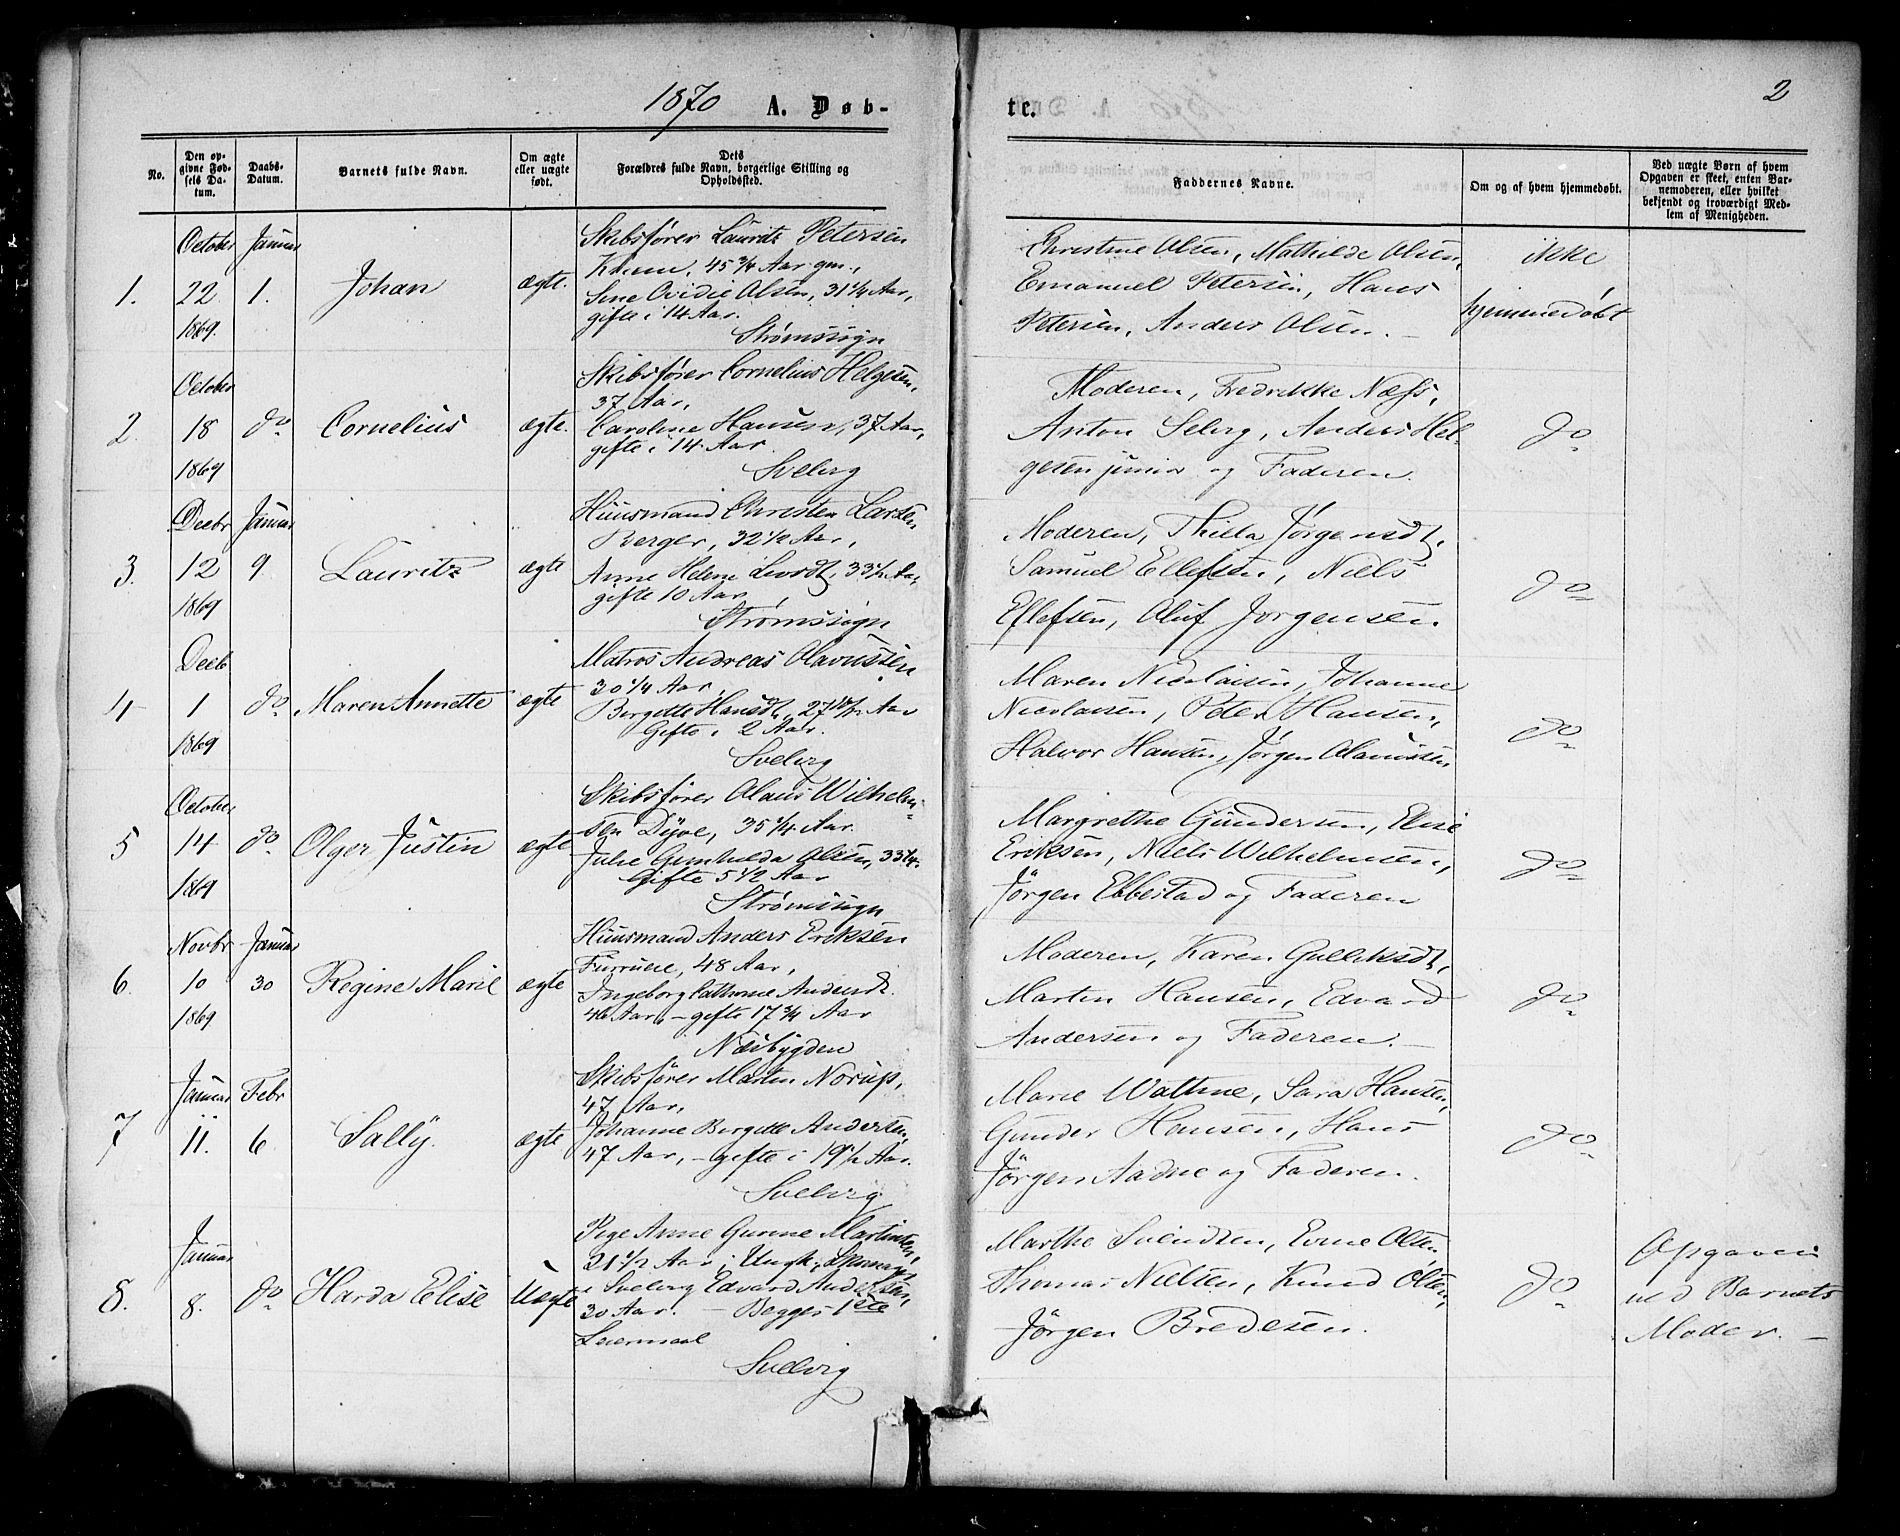 1870 A. Døb-
No.
Den opgivne Fødsels Datum.
Daabs-Datum.
Barnets fulde Navn.
Om ægte eller uægte født.
Dets Forældres fulde Navn, borgerlige Stilling og Opholdssted.
1.
October 22 1869.
Januar 1.
Johan
ægte.
Skibsfører Lauritz Petersen
45 3/4 Aar gm.,
Sine Ovidie Olsen, 31 1/4 Aar,
gifte i 14 Aar.
Strømssign
2.
October 18 1869
do
Cornelius
ægte.
Skibsfører Cornelius Helgesen,
37 Aar,
Caroline Hansen, 37 Aar,
gifte i 14 Aar.
Svelvig
3.
Decbr 12 1869
Januar 9
Lauritz
ægte
Huusmand Christen Larsen
Berger, 32 1/2 Aar,
Anne Helene 33 1/2 Aar,
gifte 10 Aar,
Strømssign
4
Decb 1 1869
do
Maren Annette
ægte
Matros Andreas Olavussen
30 1/4 Aar,
Bergitte Hansdt, Aar
Gifte i 2 Aar.
Svelvig
5
October 14 1869
do
Olger Justin
ægte
Skibsfører Olaus Wilhelm-
sen Dyve, 35 1/4 Aar.
Julie Gunhilda Olsen, 33 1/4.
Gifte 5 1/2 Aar
Strømssign
6.
Novbr 10 1869
Januar 30
Regine Marie
ægte
Huusmand Anders Eriksen
48 Aar,
Ingeborg Cathrine Andersd.
46 Aar, – gifte 17 3/4 Aar
Nesbygden
7
Januar 11.
Febr 6
Sally.
ægte
Skibsfører Martin Norup,
47 Aar,
Johanne Bergitte Andersen,
47 Aar, – gifte i 19 1/2 Aar.
Svelvig
8.
Januar 8.
do
Harda Elise
Uægte
Pige Anne Gurine Martinsen,
21 1/2 Aar; Ungk:
i Svelvig Edvard Andersen,
30 Aar. – Begges 1ste
Leiermaal
Svelvig
2
te.
Faddernes Navne.
Om og af hvem hjemmedøbt.
Ved uægte Børn af hvem
Opgaven er skeet, enten Bar-
nemoderen, eller hvilket
bekjendt og troværdigt Med-
lem af Menigheden.
Christine Olsen, Mathilde Olsen,
Emanuel Petersen, Hans
Petersen, Anders Olsen. –
ikke
hjemmedøbt
Moderen, Fredrikke Næss,
Anton Selvig, Anders Hel-
gesen junior og Faderen.
do
Moderen, Thilla Jørgensdt,
Samuel Ellefsen, Niels
Ellefsen, Oluf Jørgensen.
do
Maren Nicolaisen, Johanne
Nicolaisen, Peter Hansen,
Halvor Hansen, Jørgen Olavussen
do
Margrethe Gundersen, Elise
Eriksen, Niels Wilhelmsen,
Jørgen Ebbestad og Faderen
do
Moderen, Karen Gulliksdt,
Martin Hansen, Edvard
Andersen og Faderen. –
do
Marie Wathne, Sara Hansen,
Gunder Hansen, Hans
Jørgen Aadne og Faderen.
do
Marthe Svendsen, Evine Olsen
Thomas Nielsen, Knud Olsen,
Jørgen Bredesen.
do
Opgaven
ved Barnets
Moder. –